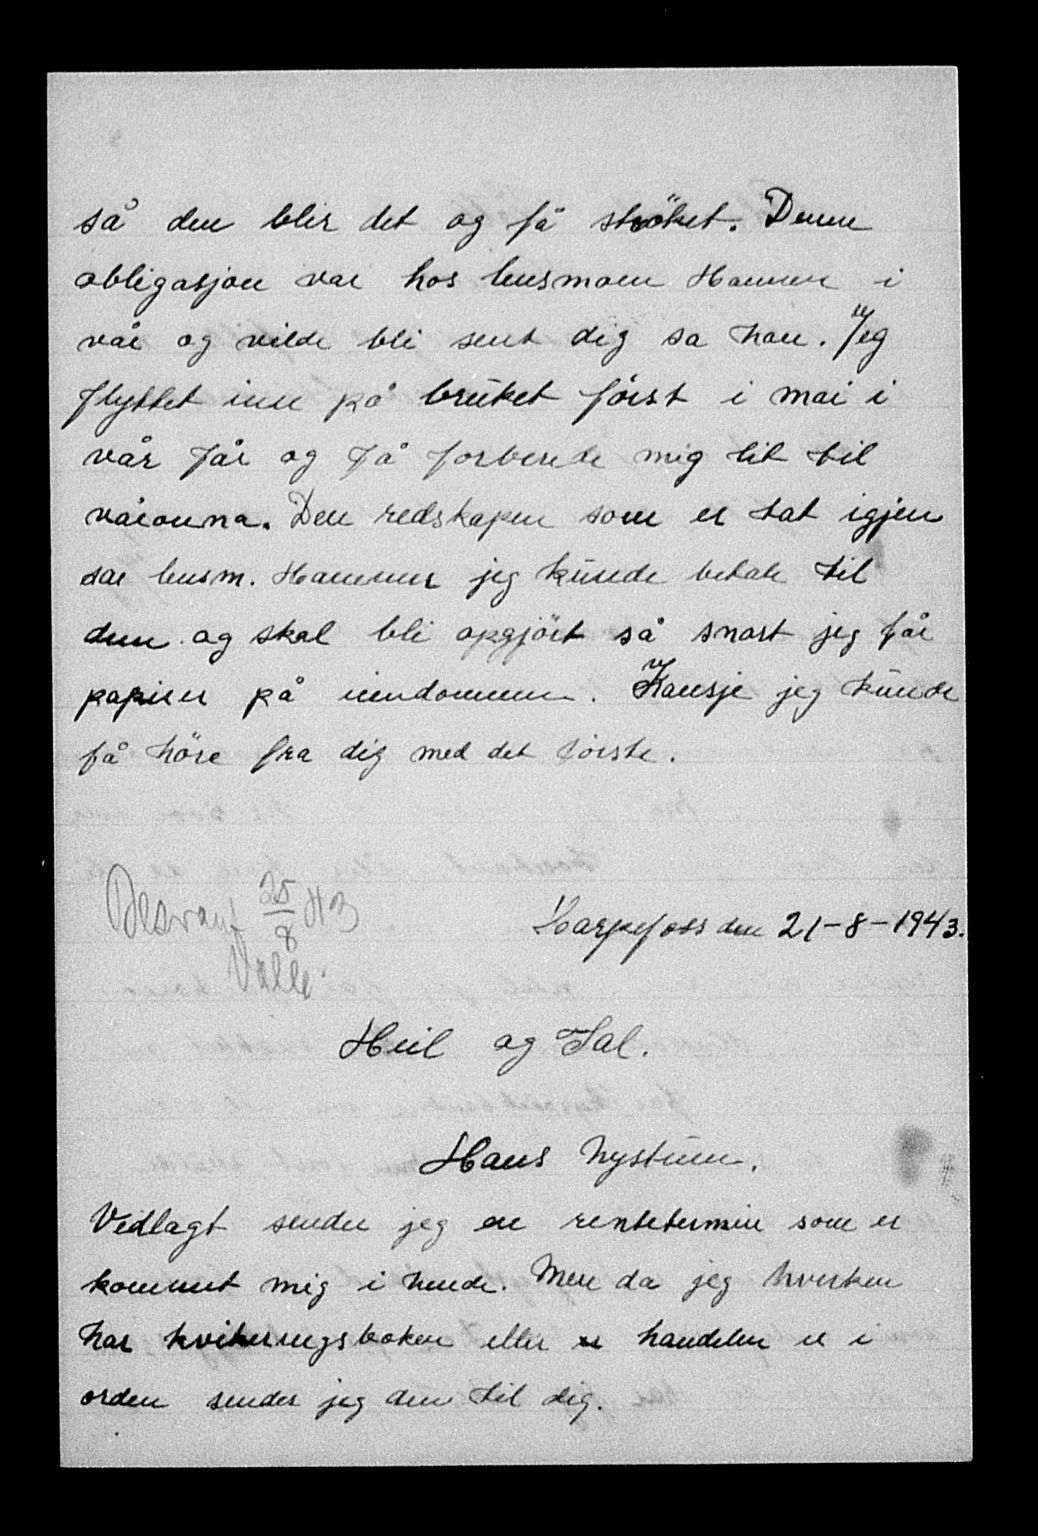 så den blir det og få ströket. Denne
obligasjon var hos lensmann Hammer i
vår og vilde bli sent dig sa han. Jeg
flyttet inn på brüket först i mai i
vår får og få forberede mig lit til
våronna. Den redskapen som er tat igjen
sa lensm. Hammer jeg künde betale til
den og skal bli opgjört så snart jeg får
papirer på eiendommen. Kansje jeg künde
få höre fra dig med det förste.
Besvart 25/8 43
Valle.
Harpefoss den 21-8-1943.
Heil og Sæl.
Hans Nystüen.
Vedlagt sender jeg en rentetermin som er
kommet mig i hende. Men da jeg hverken
har kviteringsboken eller handelen er i
orden sender jeg den til dig.